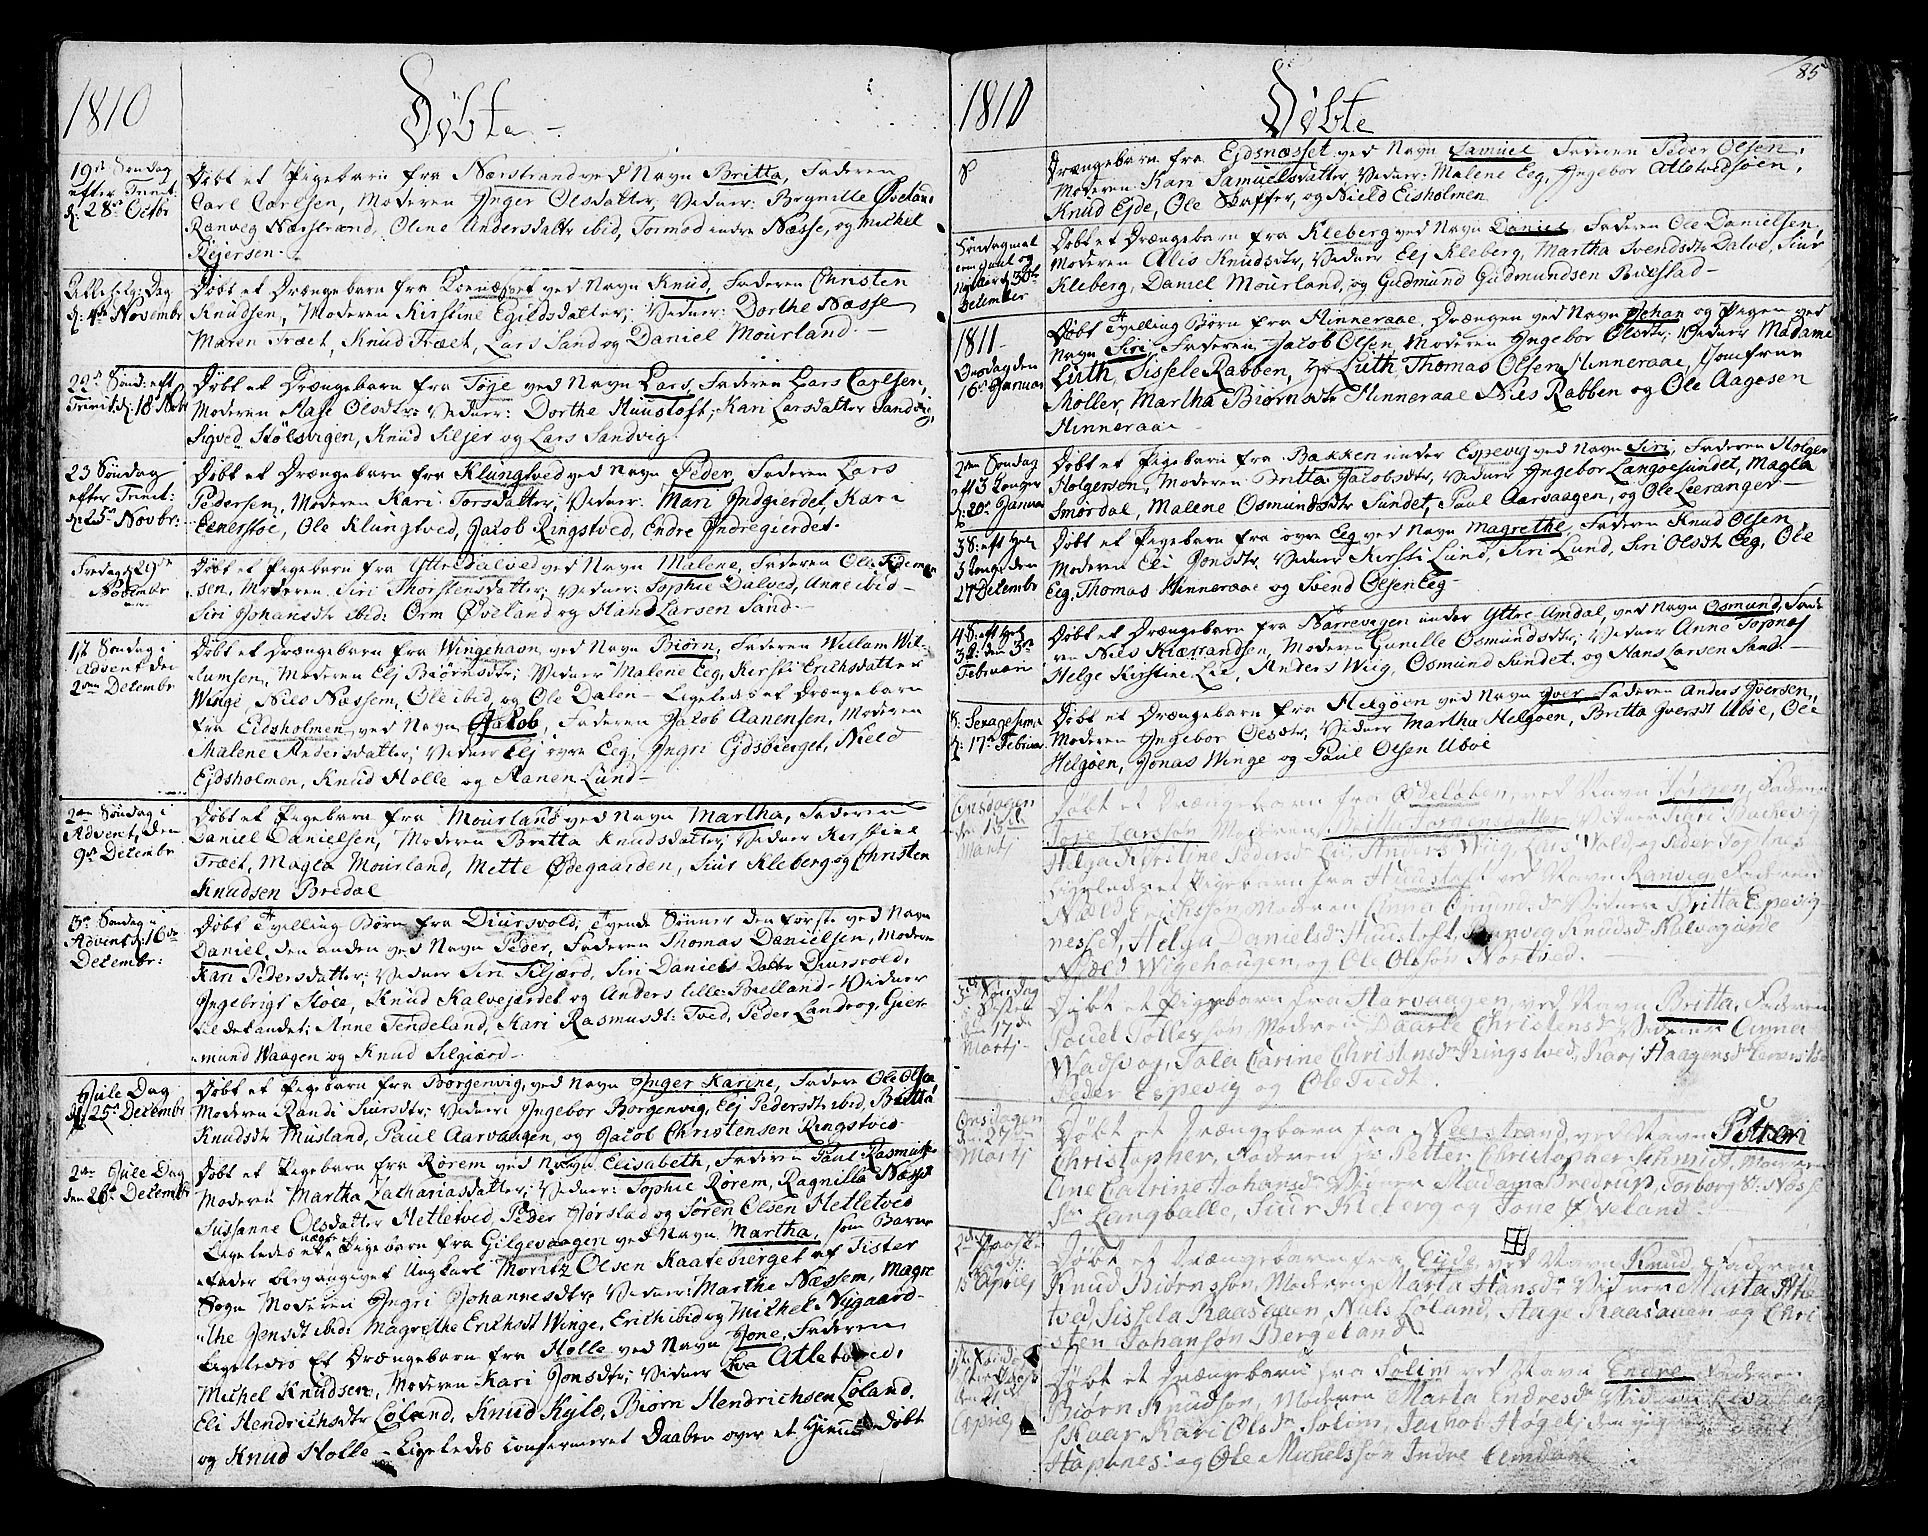 1810
Døbte
19de Søndag
efter Trinit:
d: 28de Octbr
Døbt et Pigebarn fra Nærstrand ved Navn Britta, Faderen
Carl Carlsen, Moderen Inger Olsdatter, Vidner: Brynille Øveland
Ranveg Nærstrand, Oline Andersdattr ibid, Tormod indre Næsse, og Michel
Rejersen.
Allehelg: Dag
d: 4de Novembr
Døbt et Drængebarn fra ved Navn Knud, Faderen Christen
Knudsen, Moderen Kirstine Egildsdatter; Vidner: Dorthe Næsse
Maren Træet, Knud Træet, Lars Sand og Daniel Mourland.
22de Sønd: eft
Trinit: d: 18 Nobr
Døbt et Drængebarn fra Tøje ved Navn Lars, Faderen Lars Carlsen,
Moderen Aase Olsdtr: Vidner: Dorthe Huustoft, Kari Larsdatter Sandvig,
Sigved Stølsvigen, Knud Siljer og Lars Sandvig.
23 Søndag
efter Trinit:
d: 25de Novbr:
Døbt et Drængebarn fra Klungtved ved Navn Peder, Faderen Lars
Pedersen, Moderen Kari Torsdatter, Vidner: Mari Indgierdet, Kari
Eenersøe, Ole Klungtved, Jacob Ringstved, Endre Indregierdet.
Fredag d 29de
Novembr
Døbt et Pigebarn fra Yttredalved ved Navn Malene, Faderen Ole
sen, Moderen Siri Thorstensdatter; Vidner: Sophie Dalved, Anne ibid
Siri Johansdtr ibid: Orm Øveland og Hans Larsen Sand.
1ste Søndag i
Advent den
2den Decembr
Døbt et Drængebarn fra Wingehavn ved Navn Biørn, Faderen Willam Wil-
lumsen, Moderen Elj Biørnsdtr; Vidner Malene Eeg, Kersti Erichsdatter
Winge, Niels Næssem, Ole ibid, og Ole Dalen - Ligeledes et Drængebarn
fra Eidsholmen ved Navn Jakob, Faderen Jacob Aanensen, Moderen
Malene Andersdatter; Vidner Elj øvre Eeg, Ingri Eidsbierget, Nield
Ejdsholmen, Knud Holle og Aanen Lund -
2den Søndag i
Advent, den
9de Decembr
Døbt et Pigebarn fra Mourland ved Navn Martha, Faderen
Daniel Danielsen, Moderen Britta Knudsdatter; Vidner Kirstine
Træet, Magla Mourland, Mette Ødegaarden, Siur Kleberg og Christen
Knudsen Bredal
3de Søndag i
Advent d: 16de
Decembr:
Døbt Tvilling Børn fra Diursvold; tvende Sønner den første ved Navn
Daniel, den anden ved Navn Peder, Faderen Thomas Danielsen, Moderen
Kari Pedersdatter; Vidner Siri Siljord, Siri Daniels Datter Diursvold,
Ingebrigt Hole, Knud Kalvejordet og Anders lille-Breiland - Vidner
til det andet; Anne Tendeland, Kari Rasmusdt: Tved, Peder Landrog, Gier-
mund Waagen og Knud Silgiord -
Jule Dag
d: 25de Decembr
Døbt et Pigebarn fra Borgenvig, ved Navn Inger Karine, Fadere Ole Olsen
Moderen Randi Siursdtr; Vidner: Ingebor Borgenvig, Elj Pedersdtr ibid, Britta
Knudsdtr Musland, Paul Aarvaagen, og Jacob Christensen Ringstved -
2den Jule Dag
den 26de Decembr
Døbt et Pigebarn fra Rørem ved Navn Elisabeth, Faderen Paul Rasmusen
Moderen Martha Zachariasdatter; Vidner: Sophie Rørem, Ragnilla Næsse
Sussanne Olsdatter Hetletved, Peder Hørslad og Søren Olsen Hetletved
Ligeledes et uægte Pigebarn fra Gilgevaagen ved Navn Martha, som Barne
Fader blev angivet Ungkarl Moritz Olsen Kaateberget af Tister
Sogn Moderen Ingri Johannesdtr; Vidner: Marthe Næssem, Magre
the Jonsdt ibid: Magrethe Erichsdt Winge, Erich ibid og Michel Nygaard -
Ligeledes Et Drængebarn fra Holle ved Navn Jone, Faderen
Michel Knudsen, Moderen Kari Jonsdtr; Vidner Eva Atletved,
Eli Hendrichsdtr Løland, Knud Kylo, Biørn Hendrichsen Løland,
og Knud Holle - Ligeledes Confermeret Daaben over et Hiemmedøbt
1810
Døbte
85
Drængebarn fra Ejdsnæsset ved Navn Samuel Faderen Peder Olsen,
Moderen Kari Samuelsdatter, Vidner: Malene Eeg, Ingebor Atletvedsøen,
Knud Ejde, Ole Skaffer, og Nield Eisholmen
Decembr
Døbt et Drængebarn fra Kleberg ved Navn Daniel Faderen Ole Danielsen,
Moderen Alis Knudsdtr, Vidner Elj Kleberg, Martha Svendsdtr Dalve, Siur
Kleberg, Daniel Mourland, og Gudmund Gudmundsen Buestad -
1811
Onsdag den
16de Januar
Døbt Tvilling Børn fra Hinneraae. Drængen ved Navn Johan og Pigen ved
Navn Siri, Faderen Jacob Olsen, Moderen Ingebor Olsdtr; Vidner Madame
Lüth, Sissele Rabben, Hr Lüth, Thomas Olsen Hinneraae, Jomfrue
Møller, Martha Biørnsdtr Hinneraae Niels Rabben og Ole Aagesen
Hinneraae -
2den Søndag
eft 3 Konger
d: 20de Janua
Døbt et Pigebarn fra Bakken under Espevig ved Navn Siri, Faderen Holger
Holgersen, Moderen Britta Jacobsdtr, Vidner Ingebor Langøesundet, Magla
Smørdal, Malene Osmundsdtr Sundet, Paul Aarvaagen, og Ole Leeranger -
3 S: eft Hel
3 Konge den
27 Decembr
Døbt et Pigebarn fra øvre Eeg ved Navn Magrethe, Faderen Knud Olsen,
Moderen Eli Jonsdtr, Vidner Kirsti Lund, Siri Lund, Siri Olsdt Eeg, Ole
Eeg, Thomas Hinneraae og Svend Olsen Eeg -
4 S: eft Hel
3 K: den 3de
Februari
Døbt et Drængebarn fra Narrevigen under Yttre Amdal, ved Navn Osmund, Fade
ren Niels Kiærrandsen, Moderen Gunille Osmundsdtr; Vidner Anne Topnæs
Helge Kirstine Lie, Anders Wiig, Osmund Sundet, og Hans Larsen Sand -
S. Sexagesima
d: 17de Februar
Døbt et Drængebarn fra Helgøen ved Navn Iver Faderen Anders Iversen,
Moderen Ingebor Olsdtr, Vidner Martha Helgøen, Britta Iversdt Ubøe, Ole
Helgøen, Jonas Winge og Paul Olsen Ubøe
Onsdagen
den 13de
Martj
Døbt et Drængebarn fra Ødeløben, ved Navn Jørgen, Faderen
Tore Larsson Moderen Jorgensdatter, Vidner Kari Backevig
Helga Kirstine Pedersdr Lie Anders Wiig, Lars Vold, og Peder Topnes
Ligeledes et Pigebarn fra Huustoft ved Navn Ranvig, Faderen
Næld Erichsson Moderen Anna Vidnere Britta Espevig-
nesset, Helga Danielsdr Huustoft, Ranvig Knudsdr Kalvegiorde
Nield Wigehougen, og Ole Olsson Nortved. -
3de Søndag
i Fasten
den 17de
Martj
Døbt et Pigebarn fra Harvaagen, ved Navn Britta, Faderen
Povel Tollefson Moderen Daarte Christensdr Vidnere Anna
Wadsvog, Tala Carine Christensdr Ringstved, Kari Haagensdr
Peder Espevig og Ole Tvedt
Onsdagen
den 27de
Martj
Døbt et Drængebarn fra Neerstrand, ved Navn Petter
Christopher, Faderen Petter Christopher Schmidt, Moderen
Ane Catrine Johansdr Vidner Madame Bredrup, Torborg Næsse
Langballe, Siur Kleberg og Tone Øveland
2den Paaske
Dag d:
15 Aprilj
Døbt et Drængebarn fra Eijde, ved Navn Knud Faderen
Knud Biørnsson, Moderen Marta Hansdr Vidner Marta Atle
tved, Sissela Raasauen, Nils Løland, Aage Raasauen og Chri
sten Johanson Bergeland.
Aprilj
Døbt et Drængebarn fra Solim ved Navn Endre Faderen
Biørn Knudson, Moderen Marta Endresdr
Skaar Kari Olsdr Solim, Jachob Hogel
Hapnnes: og Ole Michelsson Indre